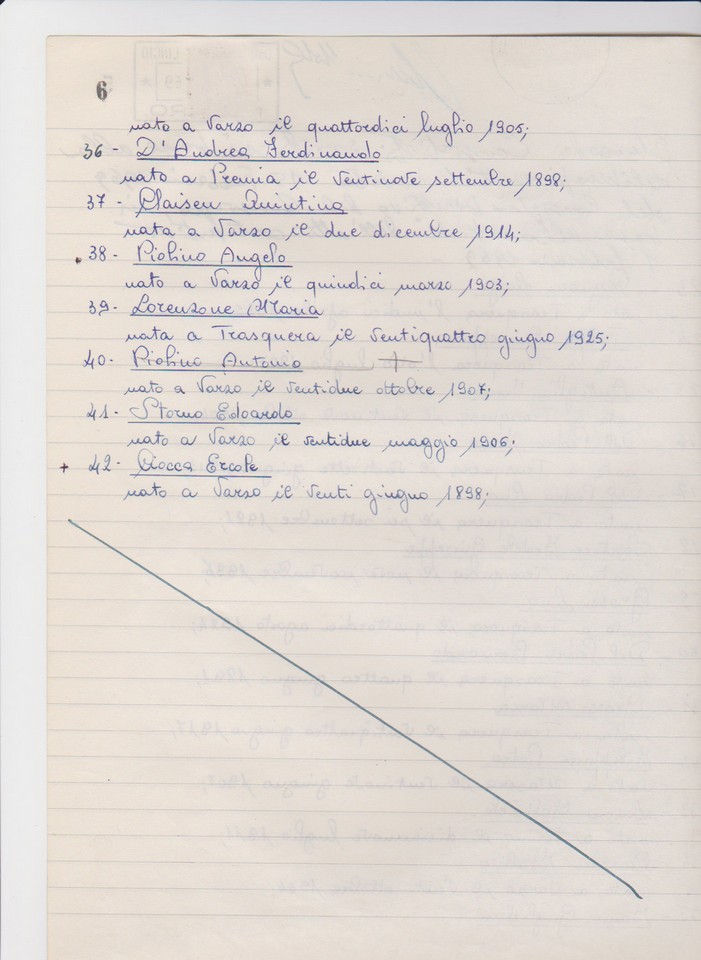 6
nato a Varzo il quattordici luglio 1905;
36 - D'Andrea Ferdinando
nato a Premia il ventinove settembre 1898;
37 - Claisen Quintina
nata a Varzo il due dicembre 1914;
38 - Piolino Angelo
nato a Varzo il quindici marzo 1903;
39 - Lorenzone Maria
nata a Trasquera il ventiquattro giugno 1925;
40 - Piolino Antonio +
nato a Varzo il ventidue ottobre 1907;
41 - Storno Edoardo
nato a Varzo il ventidue maggio 1906;
+ 42 - Ciocca Ercole
nato a Varzo il venti giugno 1898;